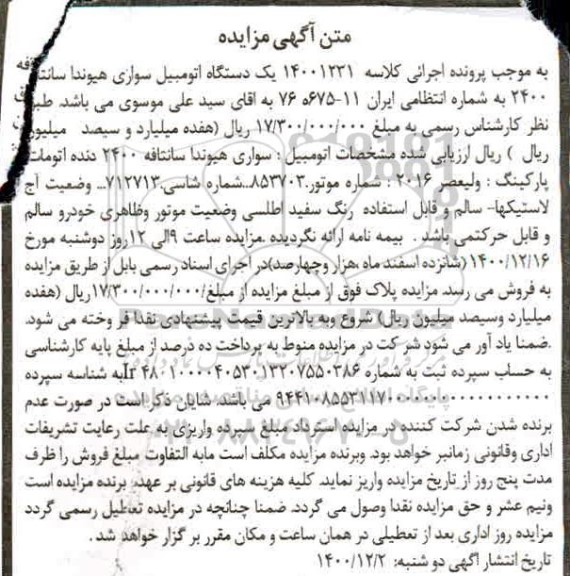 متن آگهی مزایده
به موجب پرونده اجرائی کلاسه ۱۴۰۰۱۲۳۱ یک دستگاه اتومبیل سواری هیوندا سانتافه
۲۴۰۰ به شماره انتظامی ایران ۱۱-۶۷۵ه ۷۶ به اقای سید علی موسوی می باشد. طبق
نظر کارشناس رسمی به مبلغ ۱۷/۳۰۰/۰۰۰/۰۰۰ ریال (هفده میلیارد و سیصد میلیون
ریال ) ریال ارزیابی شده مشخصات اتومبیل : سواری هیوندا سانتافه ۲۴۰۰ دنده اتومات
پارکینگ : ولیعصر ۲۰۱۶ : شماره موتور.۸۵۳۷۰۳...شماره شاسی.۷۱۲۷۱۳... وضعیت آج
لاستیکها- سالم و قابل استفاده رنگ سفید اطلسی وضعیت موتور وظاهری خودرو سالم
و قابل حرکتمی باشد . بیمه نامه ارائه نگردیده .مزایده ساعت ۹الی ۱۲ روز دوشنبه مورخ
۱۴۰۰/۱۲/۱۶ (شانزده اسفند ماه ،هزار وچهارصد)در اجرای اسناد رسمی بابل از طریق مزایده
به فروش می رسد. مزایده پلاک فوق از مبلغ مزایده از مبلغ/۱۷/۳۰۰/۰۰۰/۰۰۰ریال (هفده
میلیارد وسیصد میلیون ریال) شروع وبه بالاترین قیمت پیشنهادی نقدا فر وخته می شود.
.ضمنا یاد آور می شود شر کت در مزایده منوط به پرداخت ده درصد از مبلغ پایه کارشناسی
به حساب سپرده ثبت به شماره به شناسه سپرده
می باشد. شایان ذکر است در صورت عدم
برنده شدن شرکت کننده در مزایده استرداد مبلغ سپرده واریزی به علت رعایت تشریفات
اداری وقانونی زمانبر خواهد بود. وبرنده مزایده مکلف است مابه التفاوت مبلغ فروش را ظرف
مدت پنج روز از تاریخ مزایده واریز نماید. کلیه هزینه های قانونی بر عهده برنده مزایده است
ونیم عشر و حق مزایده نقدا وصول می گردد. ضمنا چنانچه در مزایده تعطیل رسمی گردد
مزایده روز اداری بعد از تعطیلی در همان ساعت و مکان مقرر بر گزار خواهد شد .
تاریخ انتشار اگهی دو شنبه: ۱۴۰۰/۱۲/۲